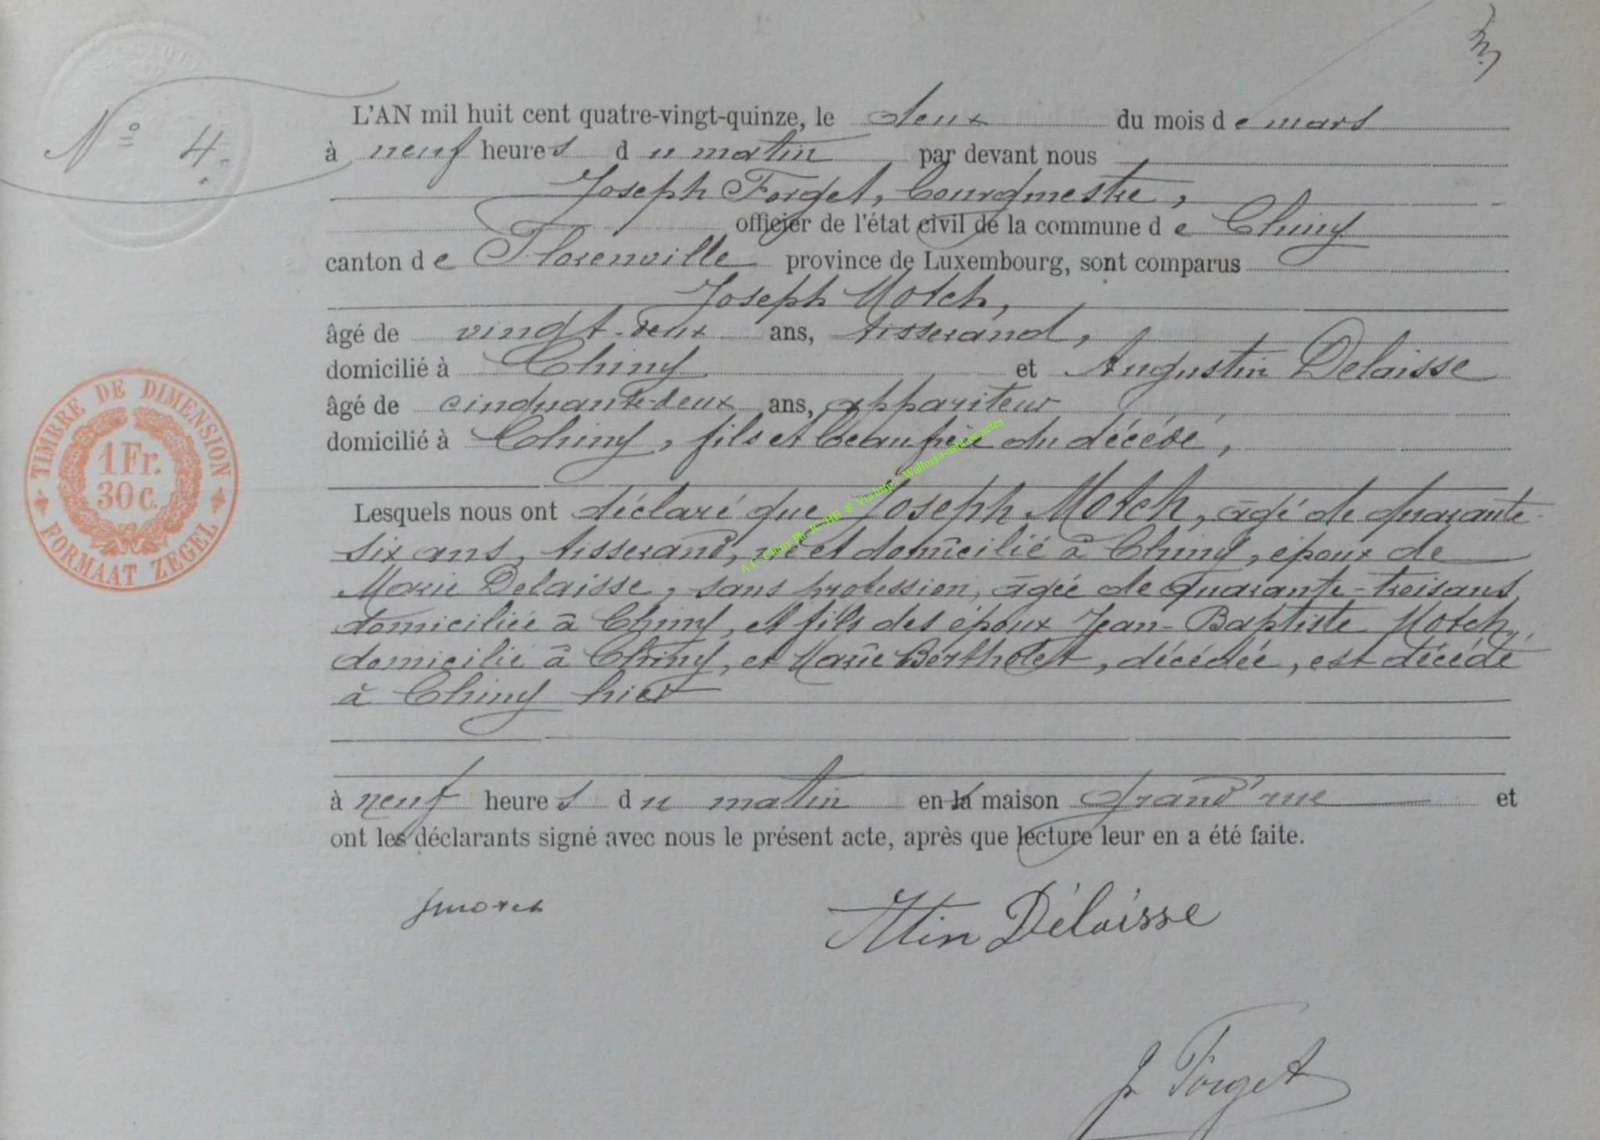 N° 4.
L'AN mil huit cent quatre-vingt-quinze, le deux du mois de mars
à neuf heures du matin par devant nous
Joseph Forget, bourgmestre,
officier de l'état civil de la commune de Chiny
canton de Florenville province de Luxembourg, sont comparus
Joseph Motch,
âgé de vingt-deux ans, tisserand,
domicilié à Chiny et Augustin Delaisse
âgé de cinquante-deux ans, appariteur
domicilié à Chiny, fils et beau frère du décédé,
Lesquels nous ont déclaré que Joseph Motch, âgé de quarante
six ans, tisserand, né et domicilié à Chiny, époux de
Marie Delaisse, sans profession, âgée de quarante-trois ans,
domiciliée à Chiny, et fils des époux Jean-Baptiste Motch,
domicilié à Chiny, et Marie Bertholet, décédée, est décédé
à Chiny hier
à neuf heures du matin en la maison Grand'rue et
ont les déclarants signé avec nous le présent acte, après que lecture leur en a été faite.
Jmotch
Atin Délaisse
J. Forget
TIMBRE DE DIMENSION
1 Fr.
30 c.
FORMAAT ZEGEL